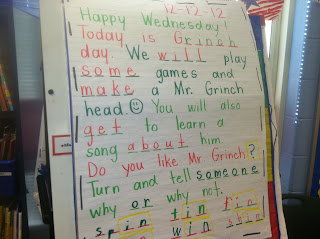 12-12-12
Happy Wednesday!
Today is Grinch
day. We will play
some games and
make a Mr. Grinch
head. You will also
get to learn a
song about him.
Do you like Mr Grinch?
Turn and tell someone
why or why not.
spin tin fin
win skin